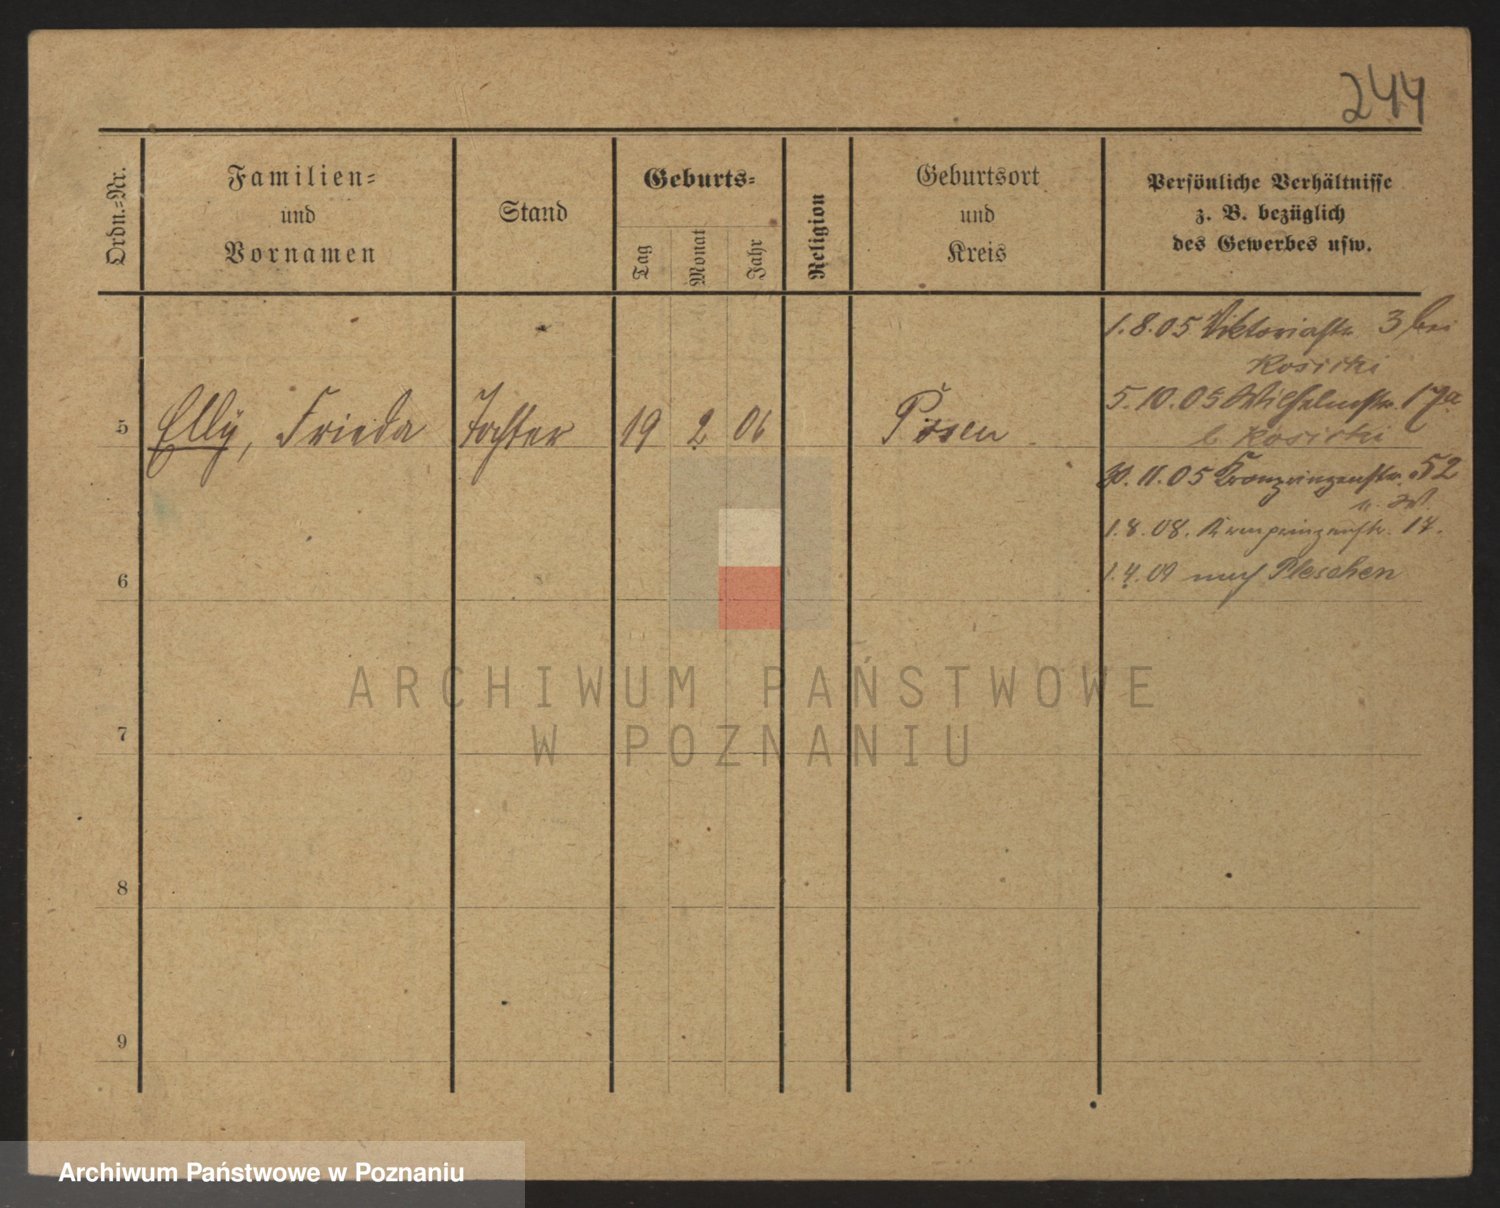 244
Ordn.=Nr.
Familien=
und
Vornamen
Stand
Geburts=
Tag
Monat
Jahr
Religion
Geburtsort
und
Kreis
Persönliche Verhältnisse
z. B. bezüglich
des Gewerbes usw.
1.8.05 Viktoriastr. 3 bei
Kosicki
5.10.05 Wilhelmstr. 17a
b. Kosicki
5 Elly, Frieda Tochter 19 2 06 Posen
30.11.05 Kronprinzenstr. 52
1.8.08. Kronprinzenstr. 17.
1.4.09 nach Pleschen
6
7
8
9
ARCHIWUM PAŃSTWOWE
W POZNANIU
Archiwum Państwowe w Poznaniu